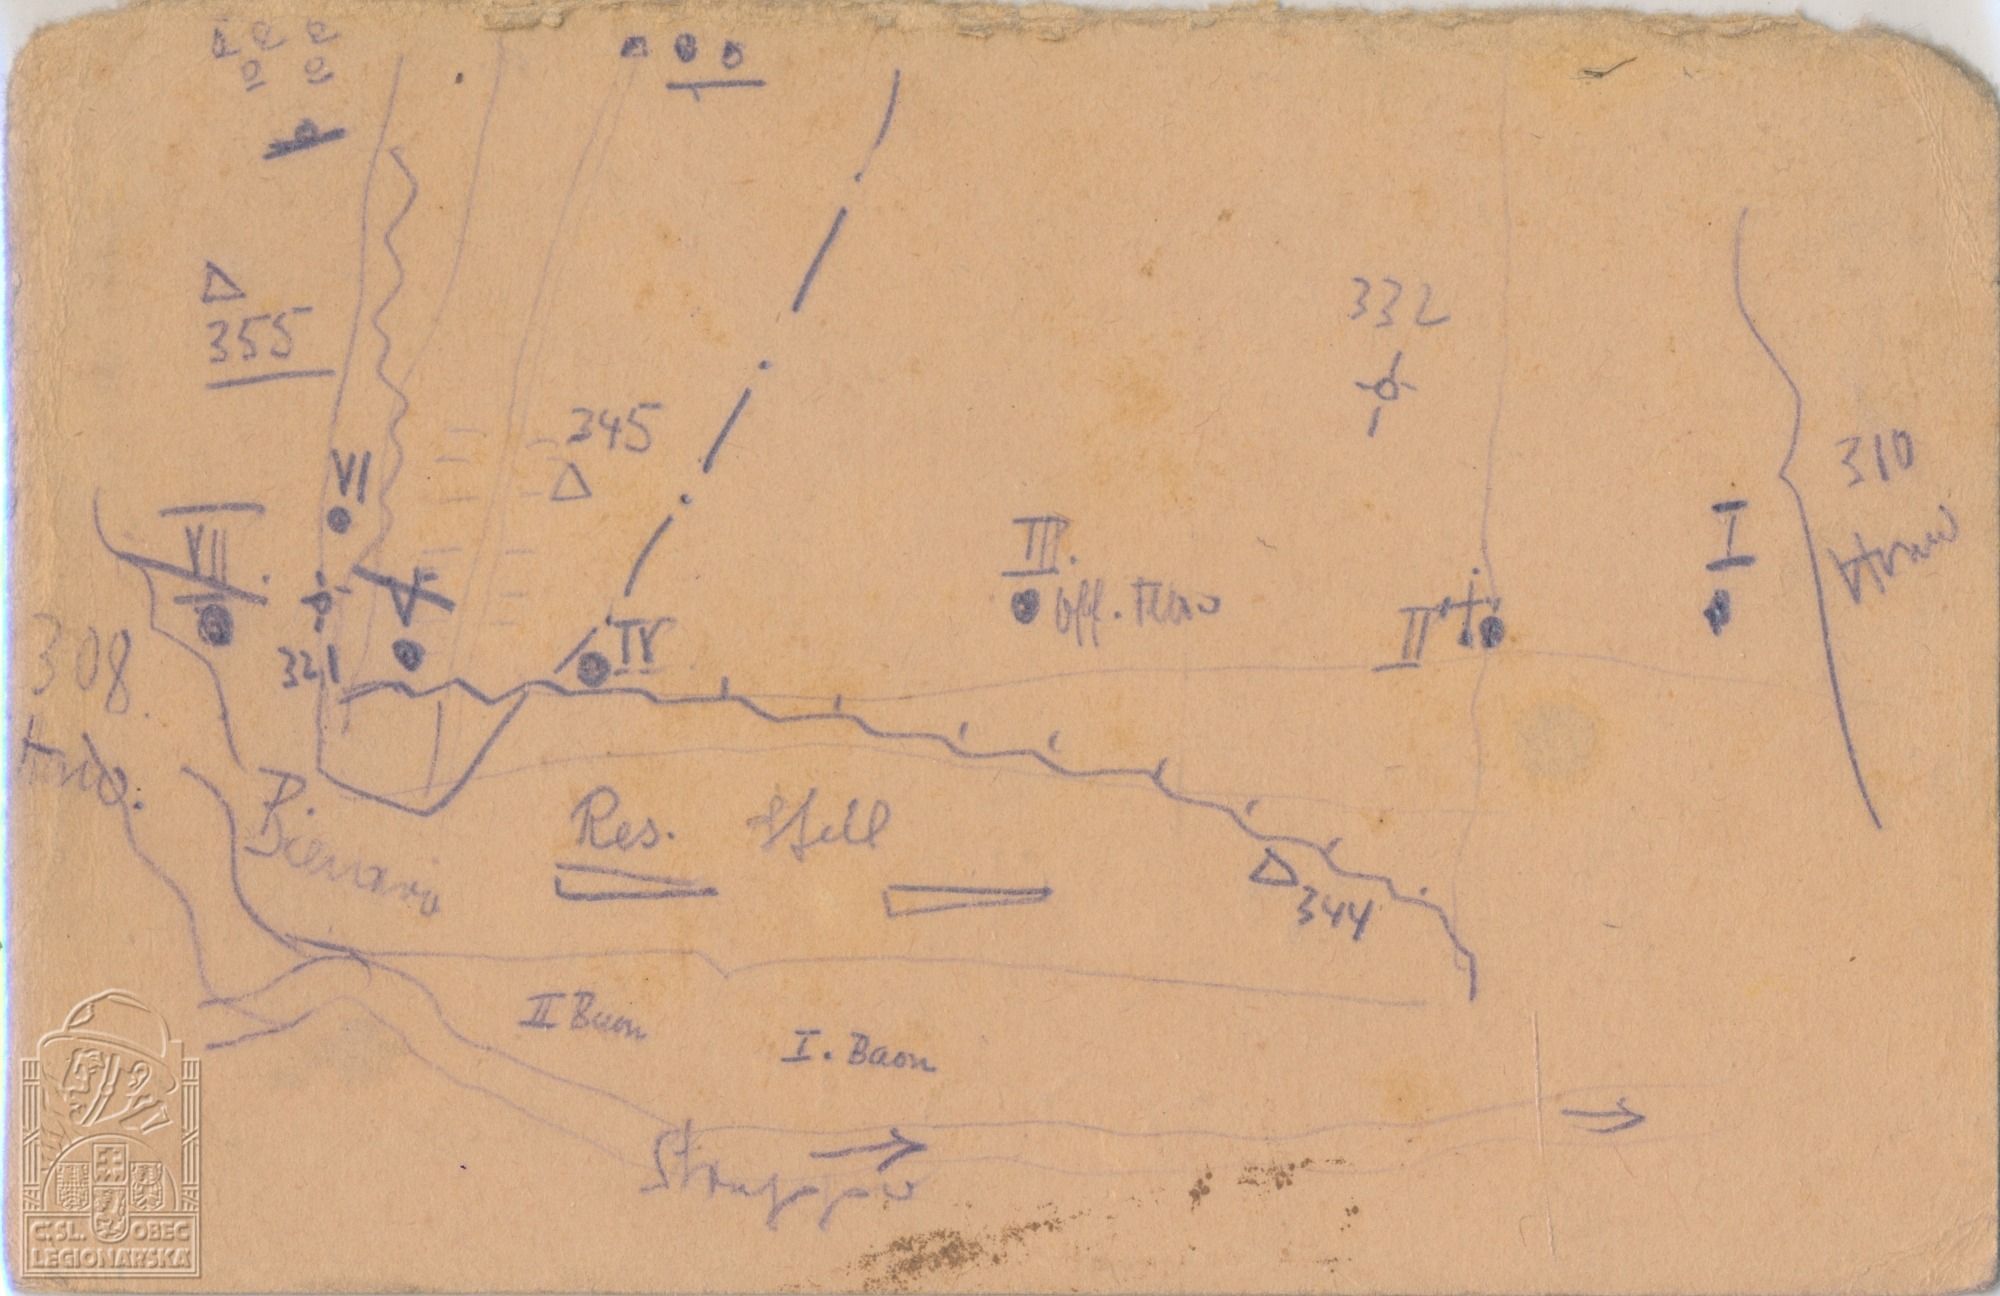 355
332
345
310
VI
VII.
V
III.
off.
I
II
IV
321
308.
Res. Stell
344
II Baon
I. Baon
Strypa
ČSL. OBEC
LEGIONÁŘSKÁ